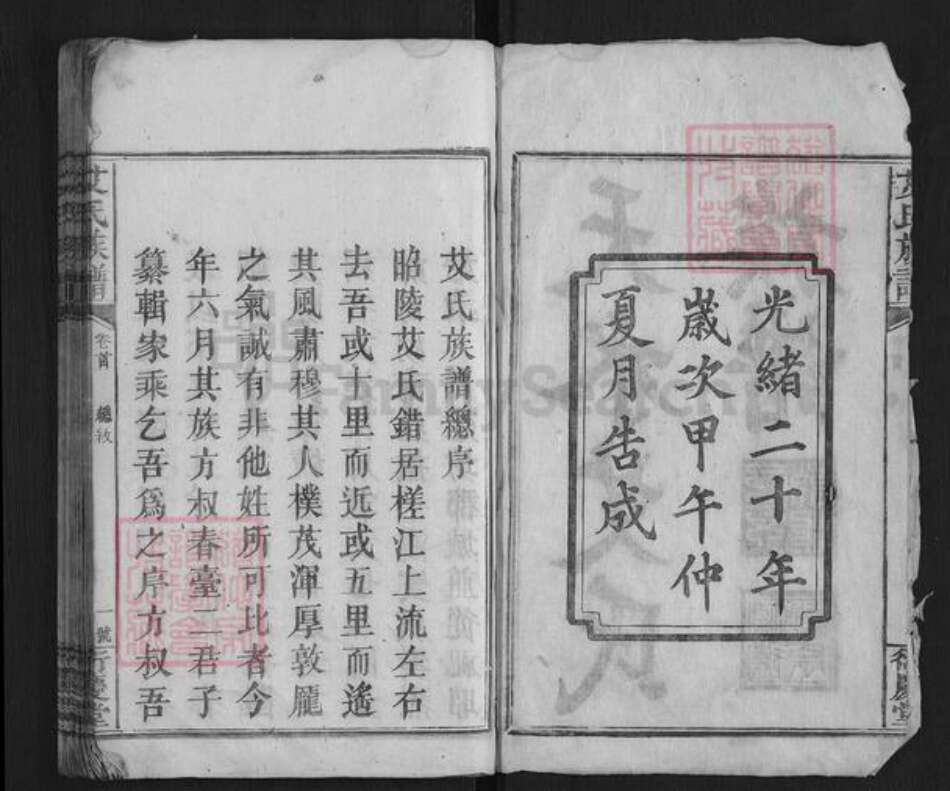 光緒二十年
歲次甲午仲
夏月告成
艾氏族譜總序
昭陵艾氏錯居槎江上流左右
去吾或十里而近或五里而遙
其風肅穆其人樸茂渾厚敦龐
之氣誠有非他姓所可比者今
年六月其族方叔春臺二君子
纂輯家乘乞吾爲之序方叔吾
艾氏族譜
卷首
總敘
一號
FamilySearch